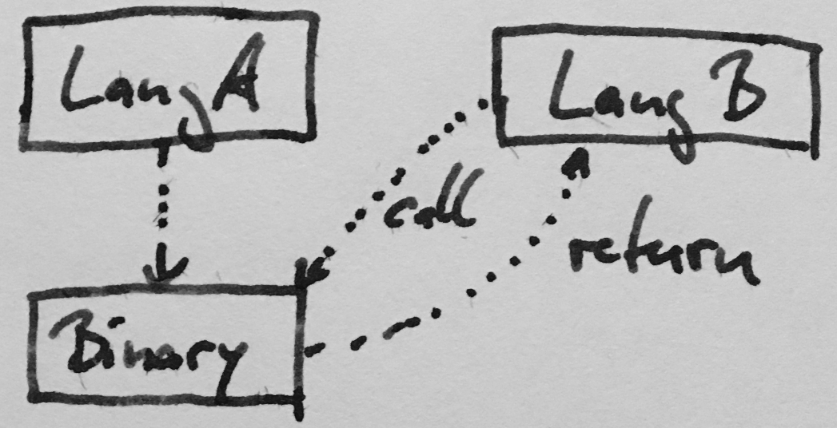 Lang A
Lang B
call
return
Binary